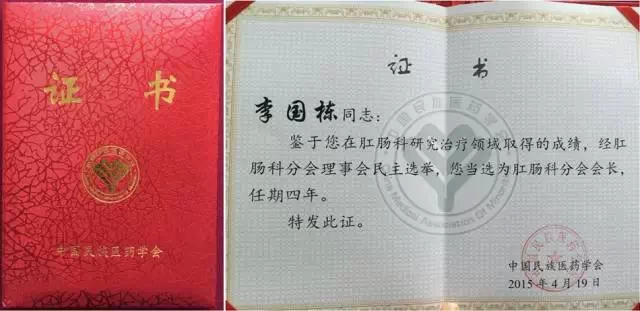 证 书
中国民族医药学会
证 书
李国栋同志：
鉴于您在肛肠科研究治疗领域取得的成绩，经肛
肠科分会理事会民主选举，您当选为肛肠科分会会长，
任期四年。
特发此证。
中国民族医药学会
2015年4月19日